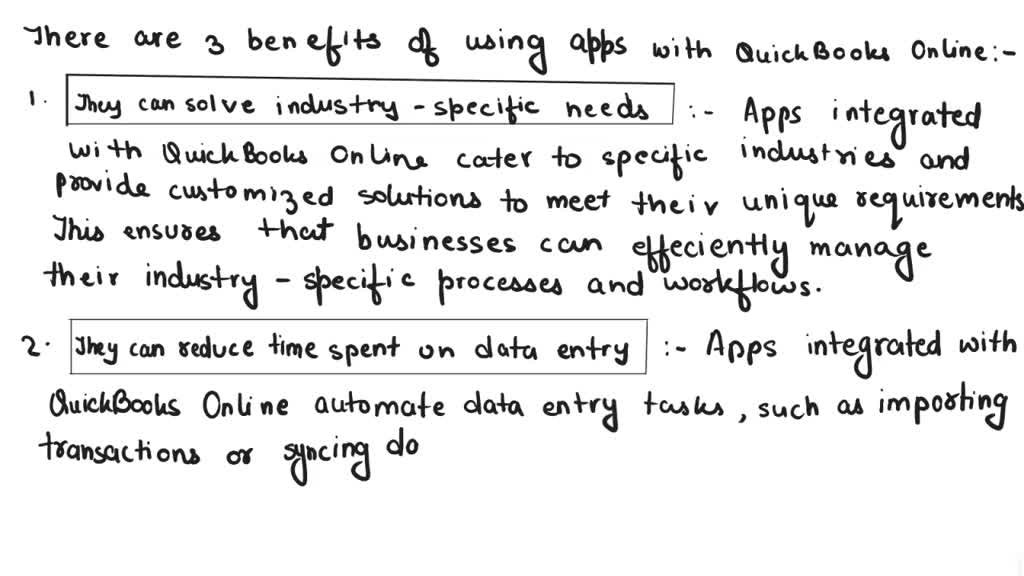 There are 3 benefits of using apps with QuickBooks Online:-
1. They can solve industry-specific needs :- Apps integrated
with QuickBooks Online cater to specific industries and
provide customized solutions to meet their unique requirements
This ensures that businesses can effeciently manage
their industry-specific processes and workflows.
2. They can reduce time spent on data entry :- Apps integrated with
QuickBooks Online automate data entry tasks, such as importing
transactions or syncing do